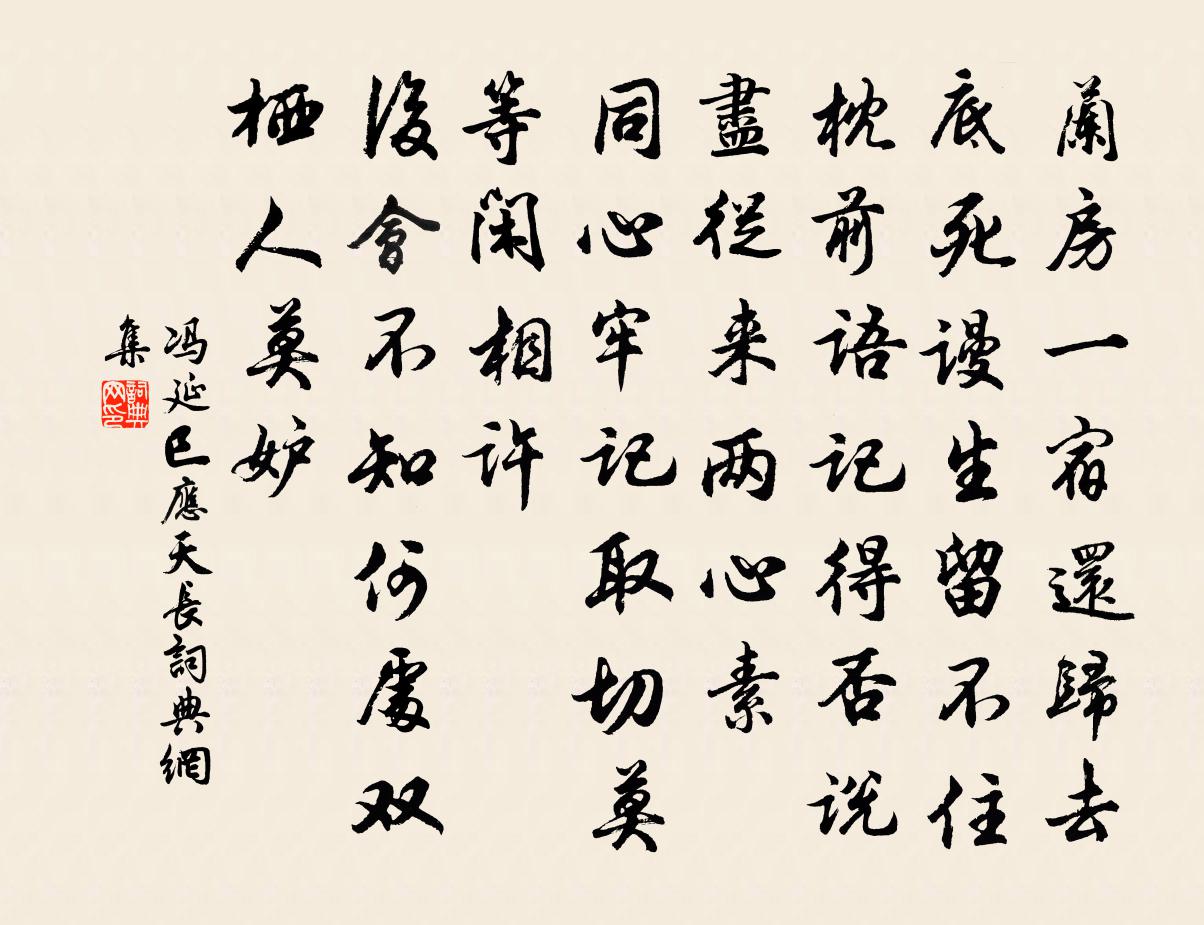 蘭房一宿還歸去
底死謾生留不住
枕前語記得否説
盡從来兩心素
同心牢記取切莫
等閑相許
後會不知何處双
栖人莫妒
冯延巳應天長詞典網
集
詞典網印